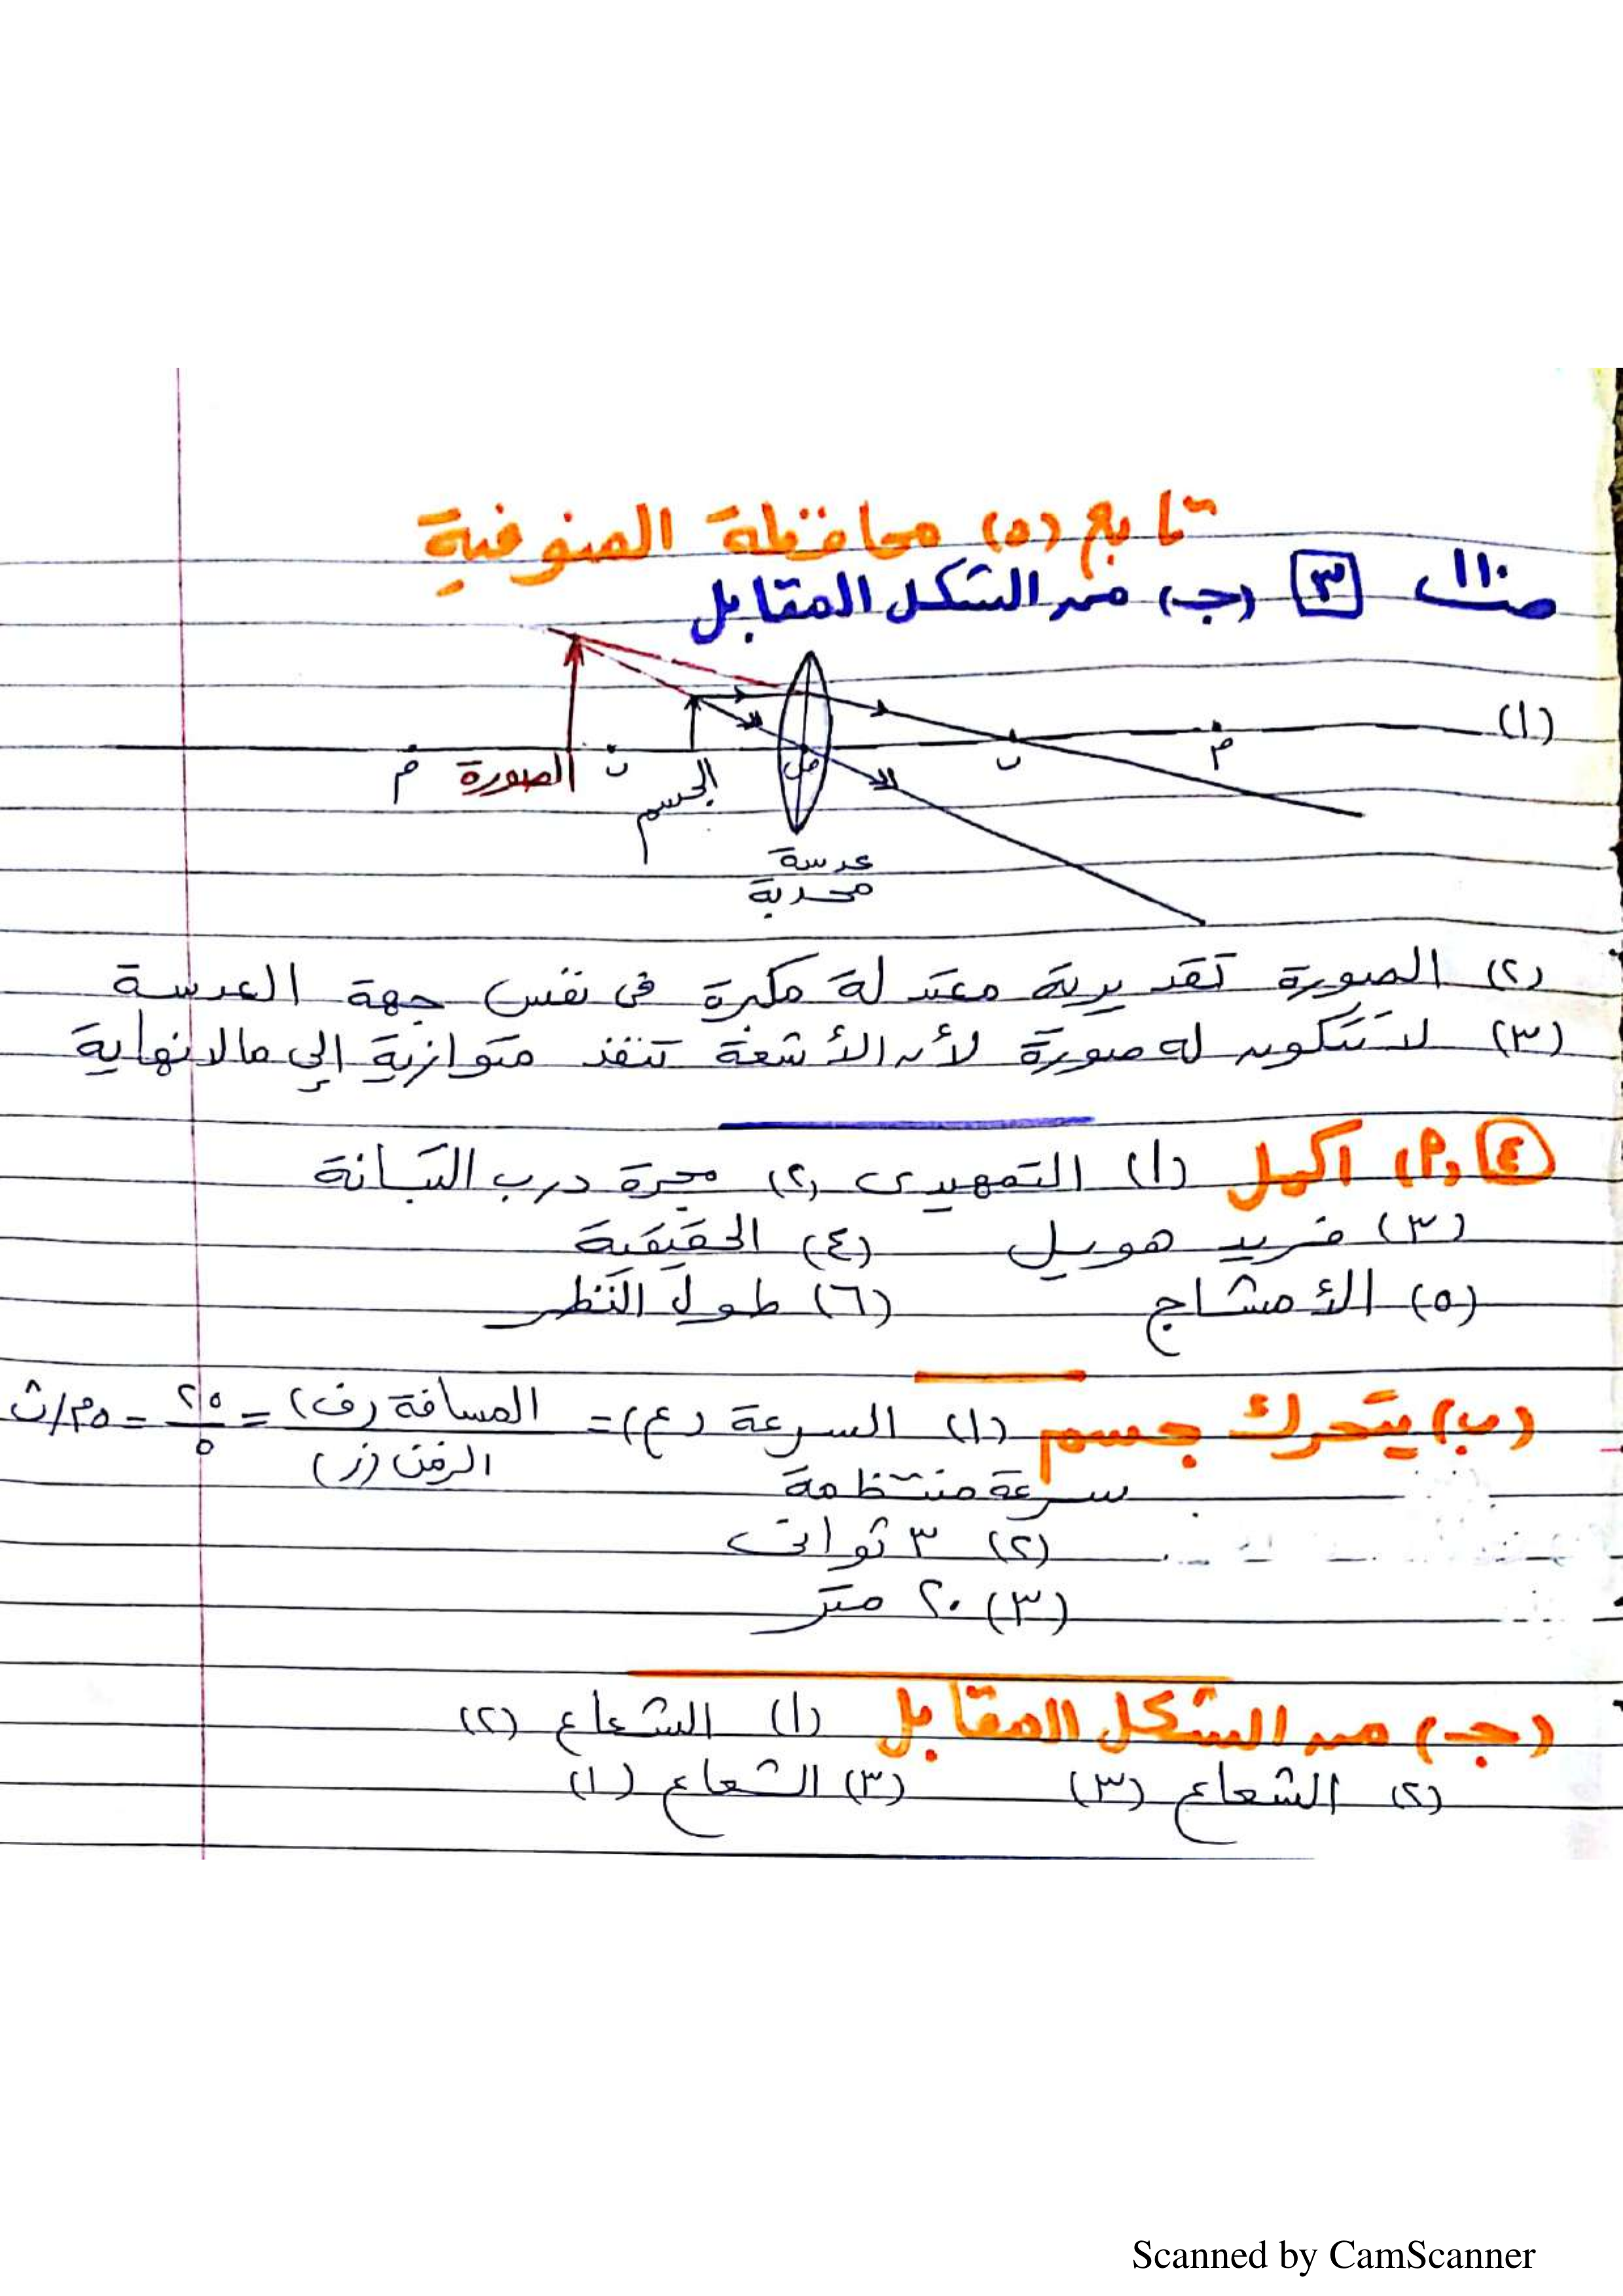 تابع (٥) محافظة المنوفية
صـ ١١٠ ٣ (جـ) من الشكل المقابل
(١)
م ب م ب
الصورة
الجسم
عدسة
محدبة
(٢) الصورة تقديرية معتدلة مكبرة فى نفس جهة العدسة
(٣) لا تتكون له صورة لأن الأشعة تنفذ متوازية إلى مالانهاية
٤ (٢) اكمل (١) التمهيدى (٢) مجرة درب التبانة
(٣) فريد هويل (٤) الحقيقية
(٥) الأمشاج (٦) طول النظر
(ب) يتحرك جسم (١) السرعة (ع) = المسافة (ف) / الزمن (ز) = ٢٥ / ٥ = ٥ م/ث
سرعة منتظمة
(٢) ٣ ثوانى
(٣) ٢٠ متر
(جـ) من الشكل المقابل (١) الشعاع (٢)
(٢) الشعاع (٣) (٣) الشعاع (١)
Scanned by CamScanner